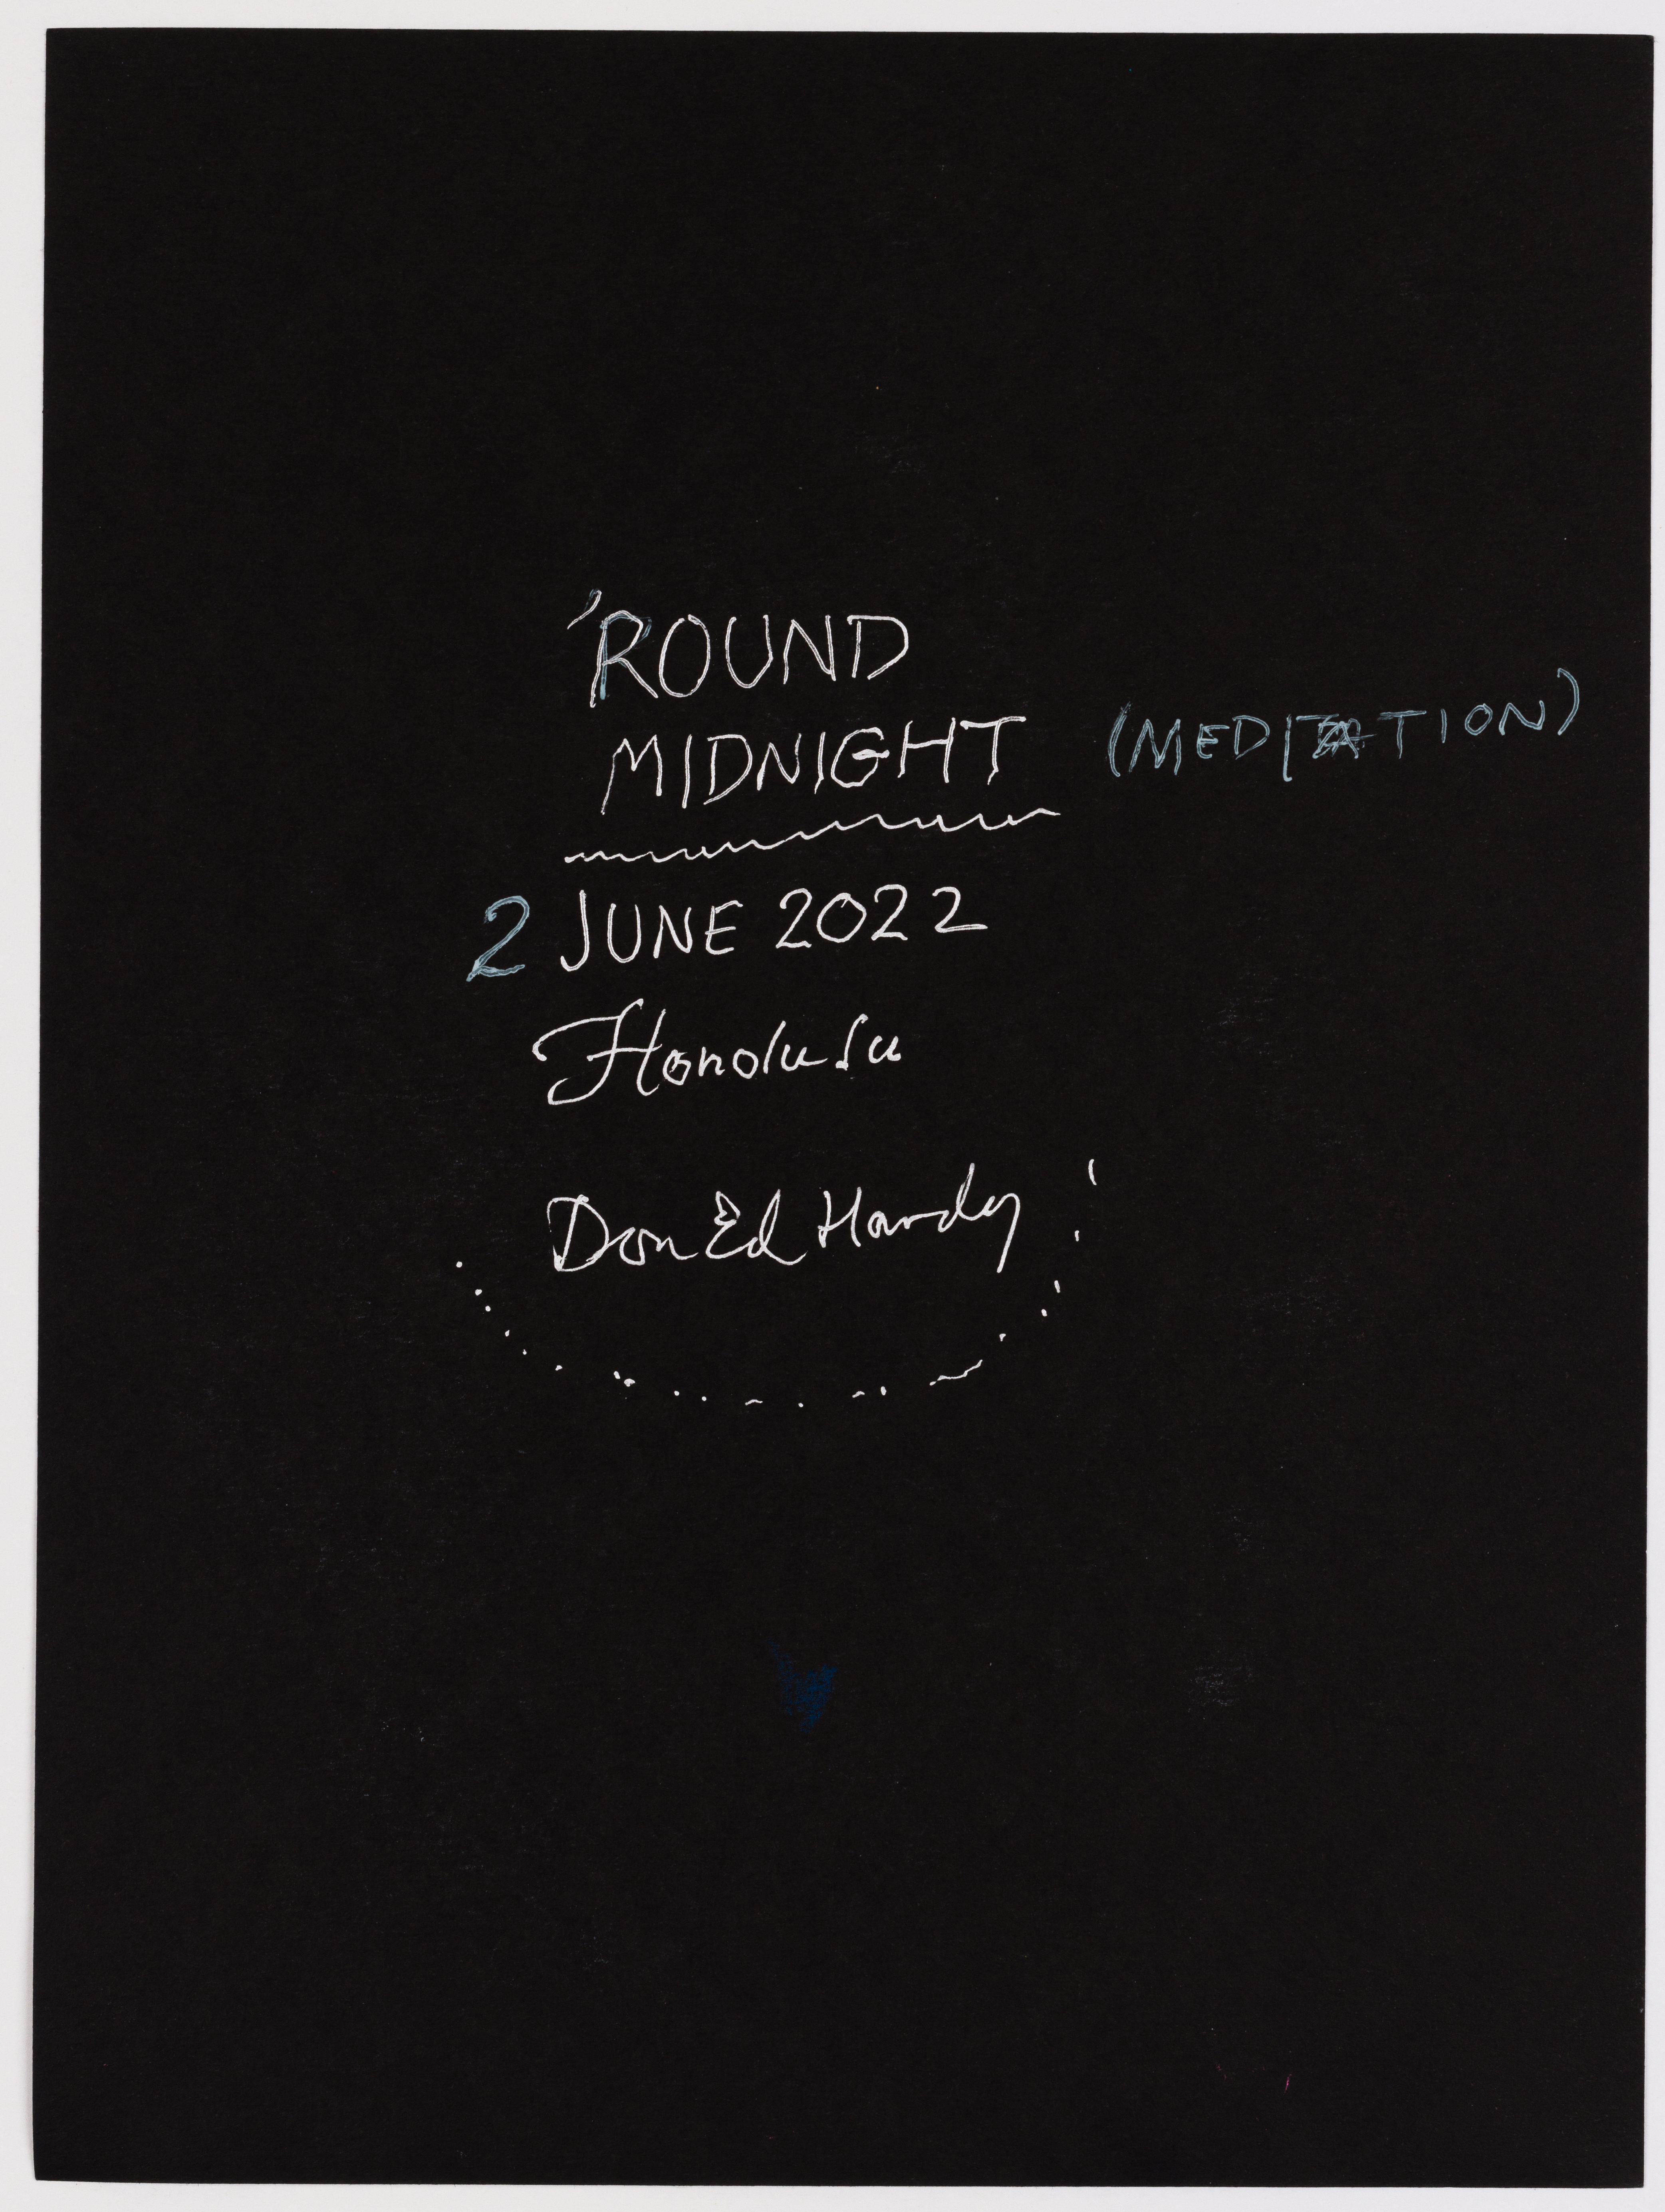 'ROUND
MIDNIGHT (MEDITATION)
2 JUNE 2022
Honolulu
Don Ed Hardy